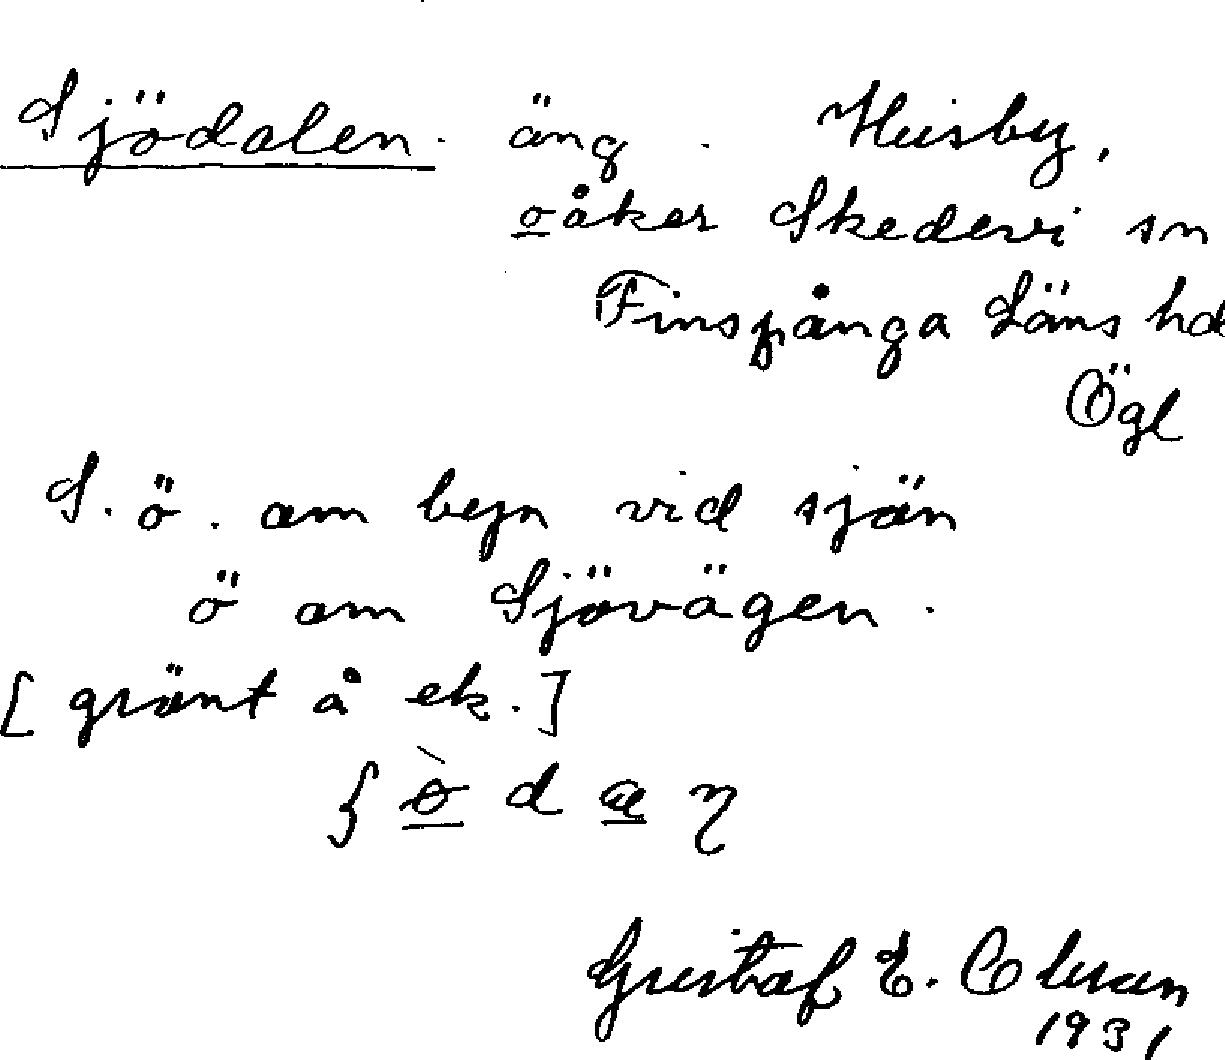 Sjödalen. äng . Husby,
o åker Skedevi sn
Finspånga Läns hd
Ögl
S. ö. om byn vid sjön
ö om Sjövägen.
[ grönt å ek. ]
Gustaf E. Olsson
1931